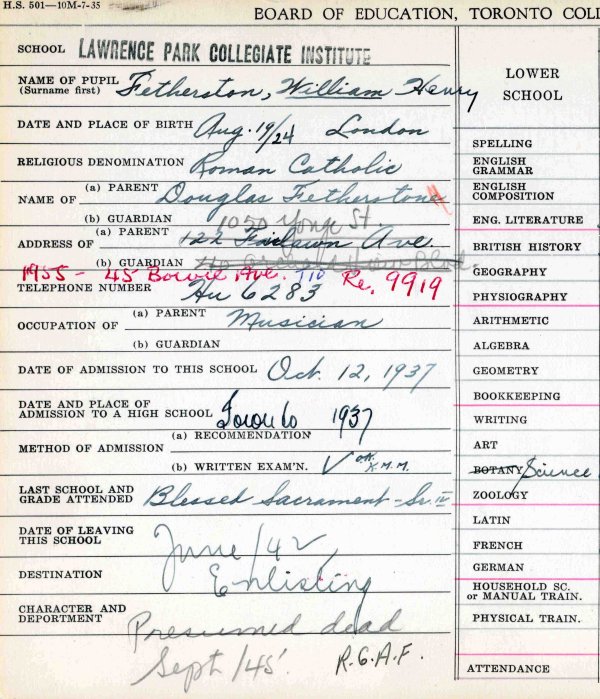 H.S. 501—10M-7-35
BOARD OF EDUCATION, TORONTO COLL
SCHOOL LAWRENCE PARK COLLEGIATE INSTITUTE
NAME OF PUPIL (Surname first) Fetherston, William Henry
DATE AND PLACE OF BIRTH Aug. 19/24 London
RELIGIOUS DENOMINATION Roman Catholic
NAME OF (a) PARENT Douglas Fetherston
(b) GUARDIAN 1050 Yonge St.
ADDRESS OF (a) PARENT 122 Fairlawn Ave.
(b) GUARDIAN Blvd.
1955 - 45 Bowie Ave. T10 Re. 9919
TELEPHONE NUMBER Hu 6283
OCCUPATION OF (a) PARENT Musician
(b) GUARDIAN
DATE OF ADMISSION TO THIS SCHOOL Oct. 12, 1937
DATE AND PLACE OF ADMISSION TO A HIGH SCHOOL Toronto 1937
METHOD OF ADMISSION (a) RECOMMENDATION
(b) WRITTEN EXAM'N. ✓
LAST SCHOOL AND GRADE ATTENDED Blessed Sacrament - Sr. IV
DATE OF LEAVING THIS SCHOOL June/42
DESTINATION Enlisting
CHARACTER AND DEPORTMENT Presumed dead
Sept/45 R.C.A.F.
LOWER
SCHOOL
SPELLING
ENGLISH
GRAMMAR
ENGLISH
COMPOSITION
ENG. LITERATURE
BRITISH HISTORY
GEOGRAPHY
PHYSIOGRAPHY
ARITHMETIC
ALGEBRA
GEOMETRY
BOOKKEEPING
WRITING
ART
BOTANY Science
ZOOLOGY
LATIN
FRENCH
GERMAN
HOUSEHOLD SC.
or MANUAL TRAIN.
PHYSICAL TRAIN.
ATTENDANCE